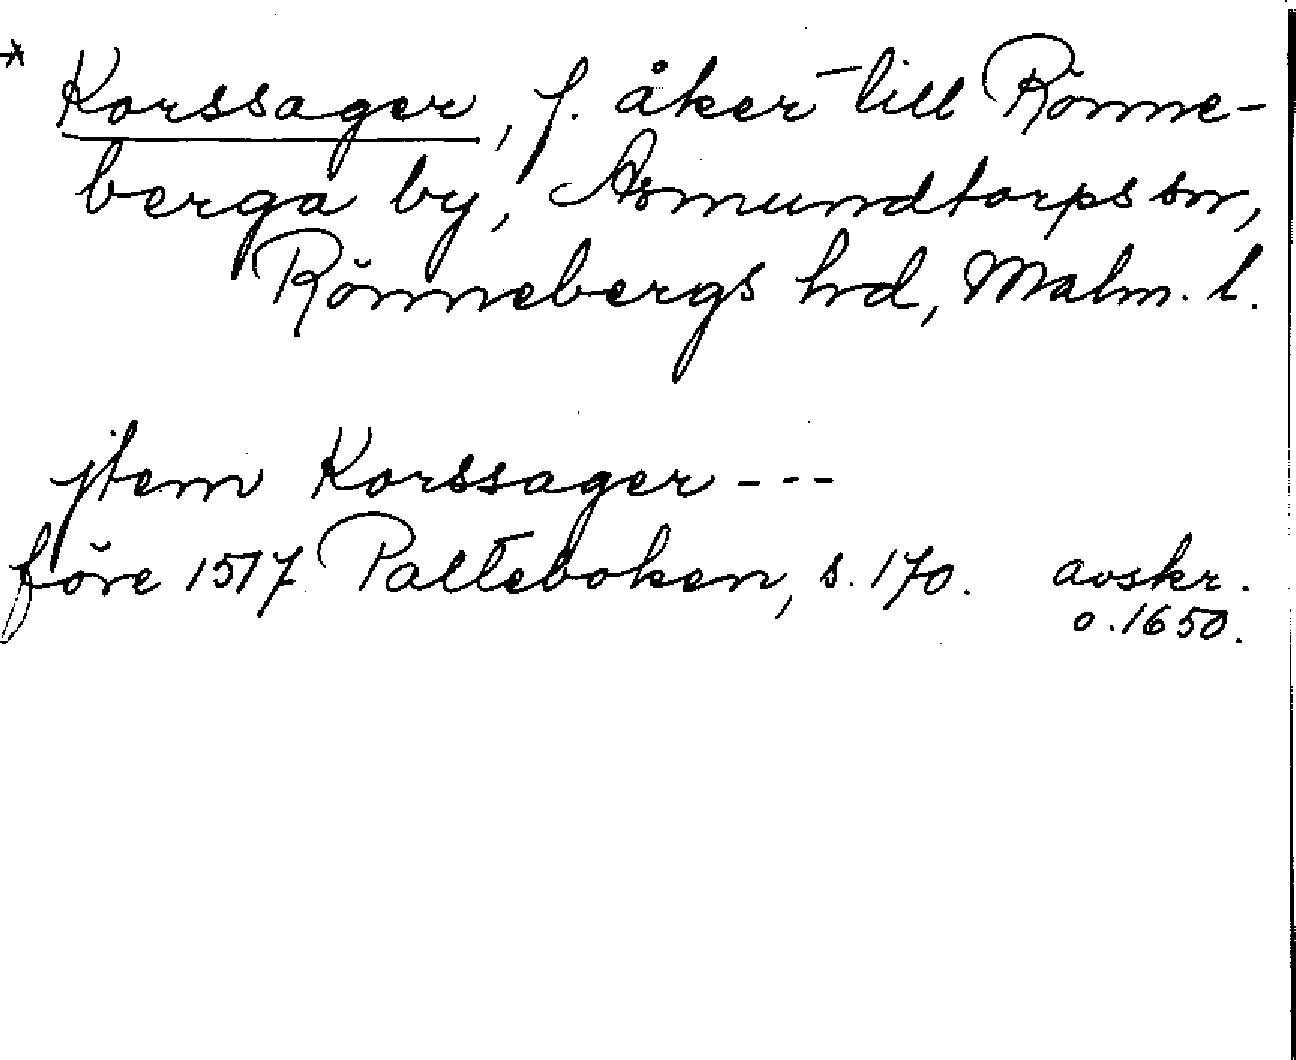 * Korssager, f. åker till Rönne-
berga by, Asmundtorps sn,
Rönnebergs hrd, Malm. l.
jtem Korssager ---
före 1517 Palteboken, s. 170. avskr.
o. 1650.